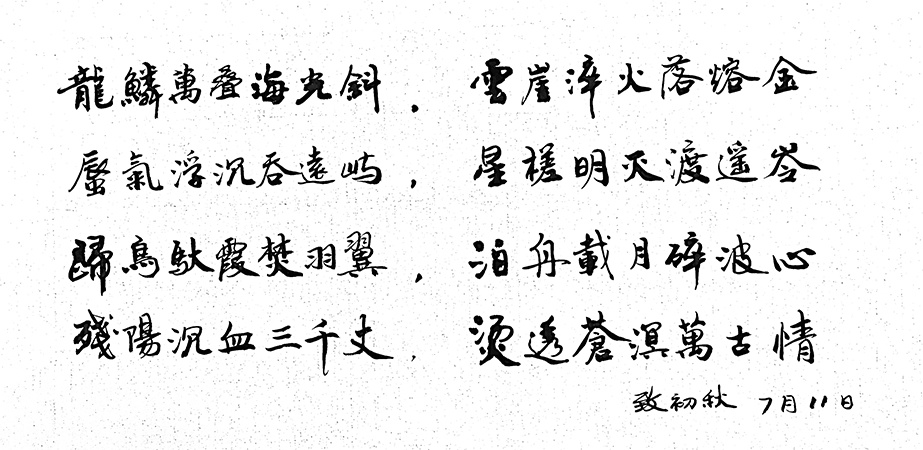 龍鱗萬叠海光斜，雲崖淬火落熔金
蜃氣浮沉吞遠屿，星槎明灭渡遥岑
歸鳥馱霞焚羽翼，泊舟載月碎波心
殘陽沉血三千丈，燙透蒼溟萬古情
致初秋 7月11日